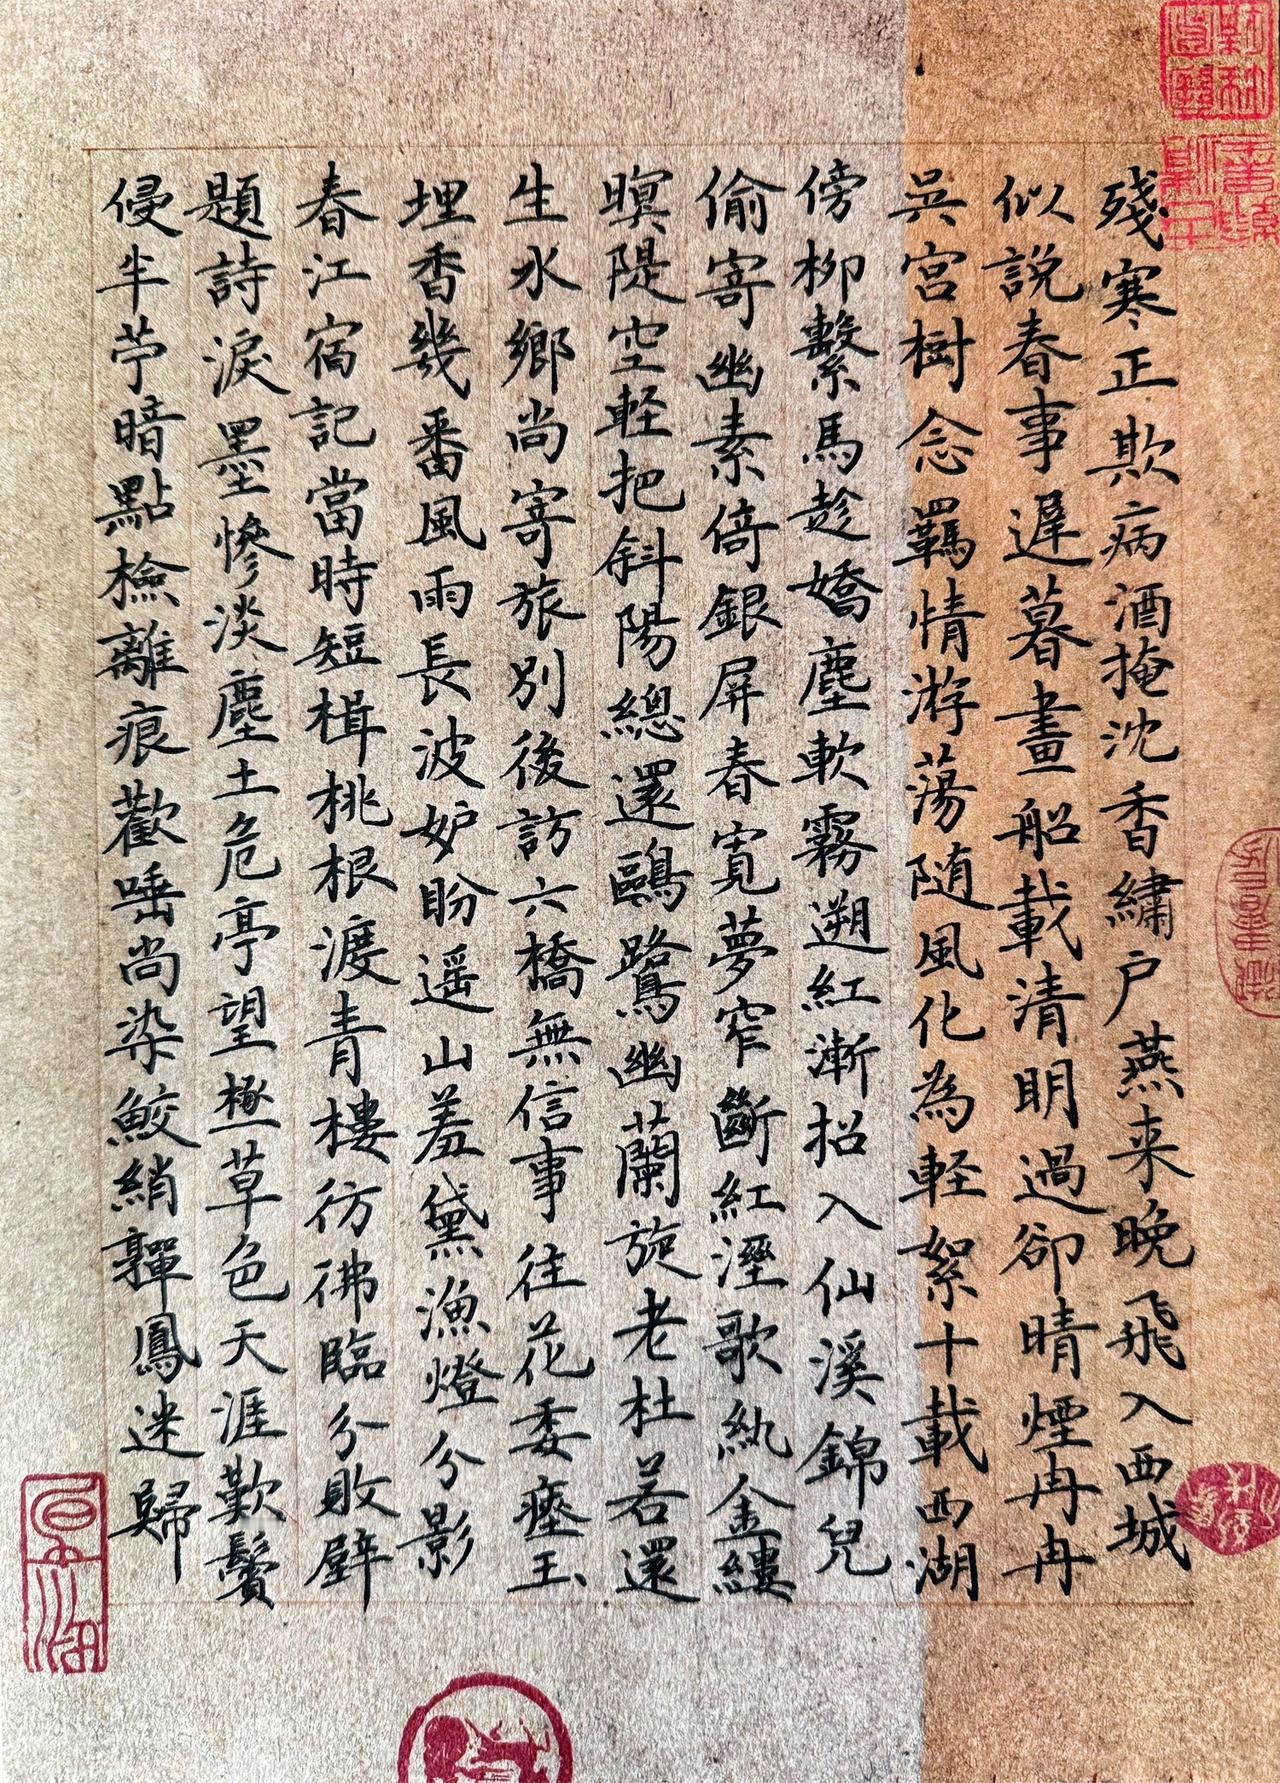 殘寒正欺病酒掩沈香繡户燕来晚飛入西城
似說春事遲暮畫船載清明過卻晴煙冉冉
吳宮樹念羈情游蕩随風化為軽絮十載西湖
傍柳繫馬趁嬌塵軟霧遡紅漸招入仙溪錦兒
偷寄幽素倚銀屏春寬夢窄斷紅溼歌紈金縷
暝隄空軽把斜陽總還鷗鷺幽蘭旋老杜若還
生水鄉尚寄旅別後訪六橋無信事往花委瘞玉
埋香幾番風雨長波妒盼遥山羞黛漁燈分影
春江宿記當時短楫桃根渡青樓彷彿臨分敗壁
題詩淚墨慘淡塵土危亭望極草色天涯歎鬢
侵半苧暗點檢離痕歡唾尚染鮫綃嚲鳳迷歸